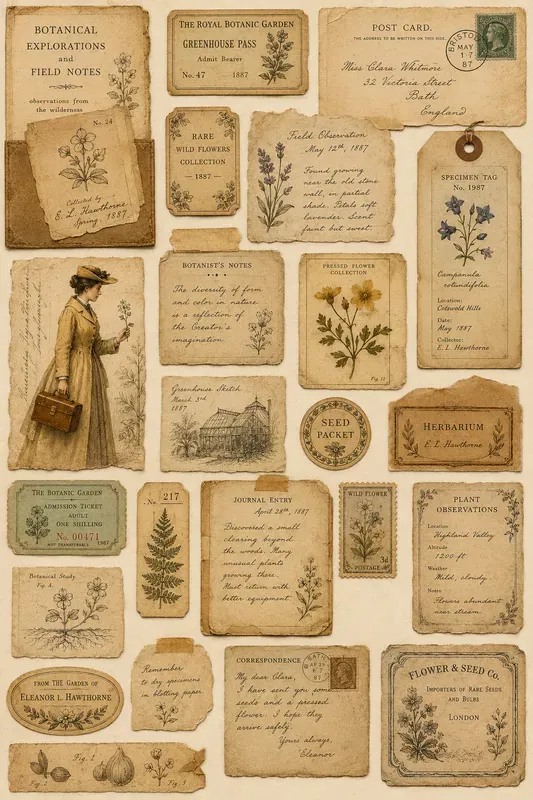 BOTANICAL
EXPLORATIONS
and
FIELD NOTES
observations from
the wilderness
No. 24
Collected by
E. L. Hawthorne
Spring, 1887
THE ROYAL BOTANIC GARDEN
GREENHOUSE PASS
Admit Bearer
No. 47 1887
POST CARD.
THE ADDRESS TO BE WRITTEN ON THIS SIDE.
BRISTOL
MAY
17
87
Miss Clara Whitmore
32 Victoria Street
Bath
England
RARE
WILD FLOWERS
COLLECTION
— 1887 —
Field Observation
May 12th, 1887
Found growing
near the old stone
wall, in partial
shade. Petals soft
lavender. Scent
faint but sweet.
SPECIMEN TAG
No. 1987
Campanula
rotundifolia
Location:
Cotswold Hills
Date:
May 1887
Collector:
E. L. Hawthorne
BOTANIST'S NOTES
The diversity of form
and color in nature
is a reflection of
the Creator's
imagination.
PRESSED FLOWER
COLLECTION
Fig. 11
Greenhouse Sketch
March 3rd
1887
SEED
PACKET
HERBARIUM
E. L. Hawthorne
THE BOTANIC GARDEN
ADMISSION TICKET
ADULT
ONE SHILLING
No. 00471
NOT TRANSFERABLE
1987
No. 217
JOURNAL ENTRY
April 28th, 1887
Discovered a small
clearing beyond
the woods. Many
unusual plants
growing there.
Must return with
better equipment.
WILD FLOWER
3d
POSTAGE
PLANT
OBSERVATIONS
Location
Highland Valley
Altitude
1200 ft.
Weather
Mild, cloudy.
Notes
Flowers abundant
near stream.
Botanical Study
Fig. A.
FROM THE GARDEN OF
ELEANOR L. HAWTHORNE
Remember
to dry specimens
in blotting paper
CORRESPONDENCE
BATH
My dear Clara,
I have sent you some
seeds and a pressed
flower. I hope they
arrive safely.
Yours always,
Eleanor
FLOWER & SEED Co.
IMPORTERS OF RARE SEEDS
AND BULBS
LONDON
Fig. 1
Fig. 2
Fig. 3